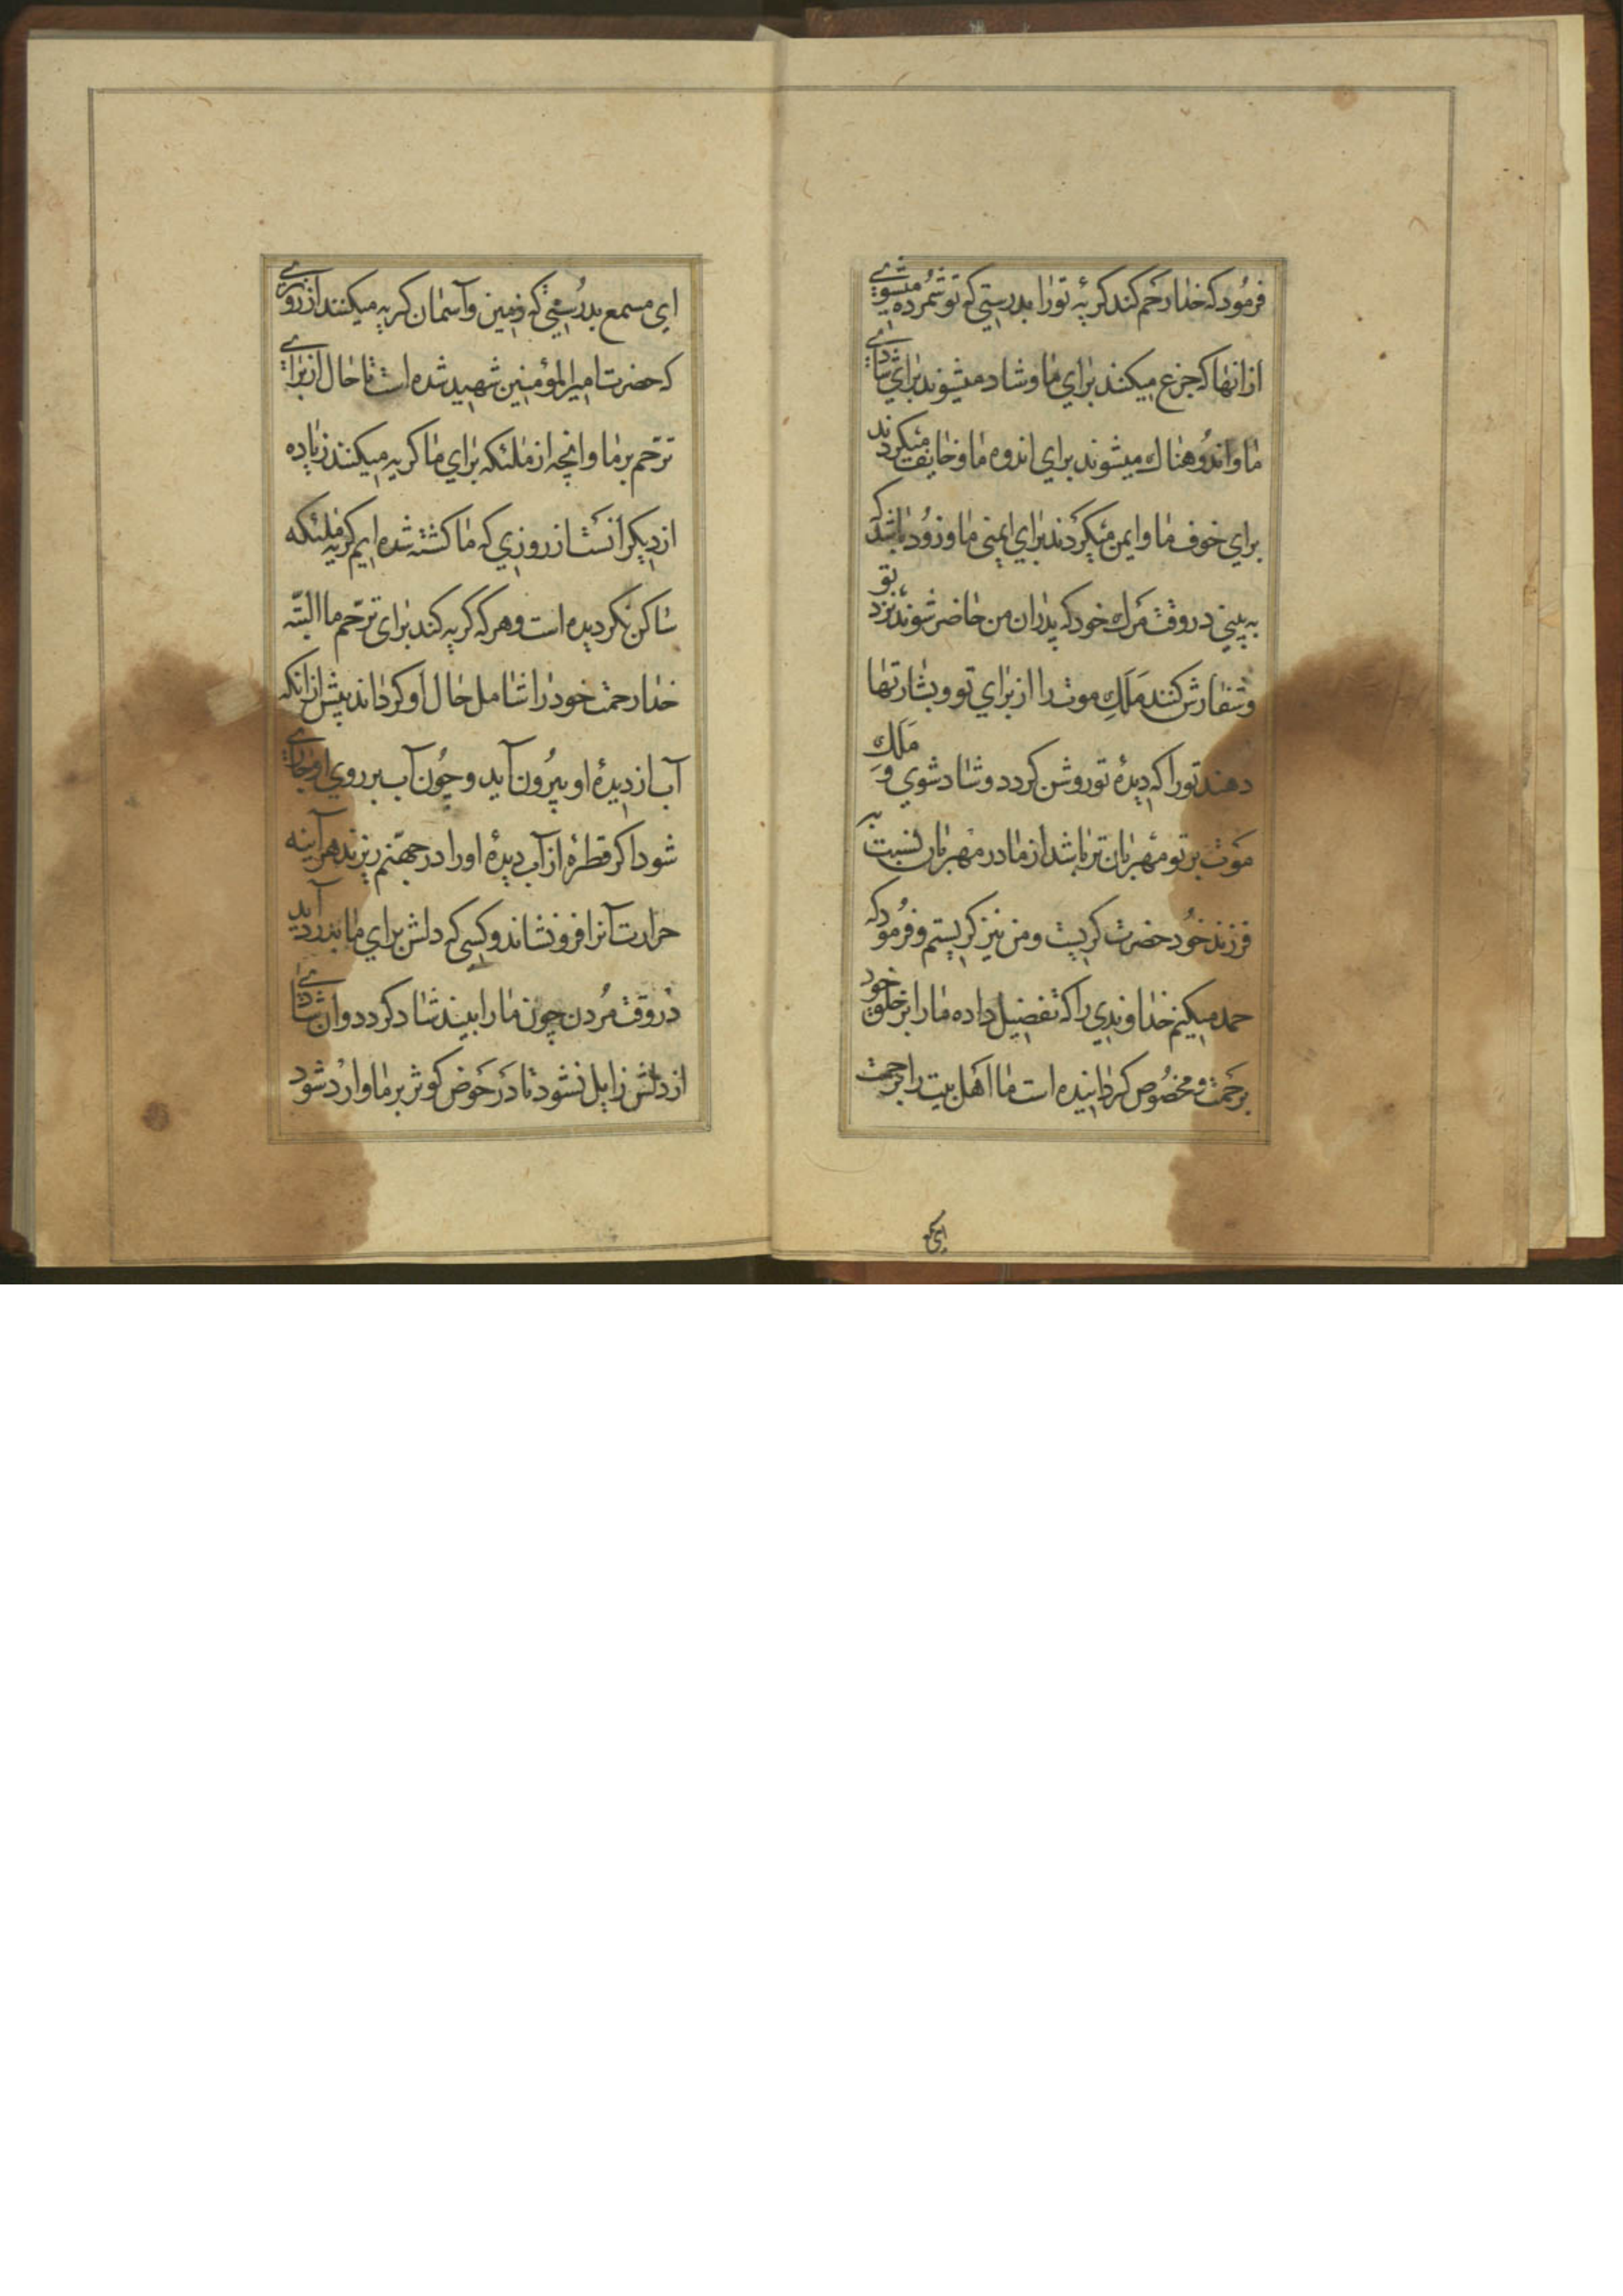 فرمود که خدا رحم کند کریهٔ تو را بدرستی که تو شمرده میشوی
از انها که جزع میکنند برای ما و شاد میشوند برای شادی
ما و اندوهناک میشوند برای اندوه ما و خایف میکردند
برای خوف ما و ایمن میکردند برای ایمنی ما و زود باشد که
به بینی در وقت مرک خود که پدران من حاضر شوند نزد تو
و سفارش کنند ملک موت را از برای تو و بشارتها
دهند تو را که دیدهٔ تو روشن کردد و شاد شوی و ملک
موت بر تو مهربان تر باشد از مادر مهربان نسبت به
فرزند خود حضرت کریست و من نیز کریستم و فرمود که
حمد میکنم خداوندی را که تفضیل داده ما را بر خلق خود
برحمت و مخصوص کردانیده است ما اهل بیت را برحمت
ای مسمع بدرستی که زمین و آسمان کریه میکنند از روزی
که حضرت امیر المؤمنین شهید شده است تا حال از برای
ترحّم بر ما و انچه از ملئکه برای ما کریه میکنند زیاده
از دیکرانست از روزی که ما کشته شده ایم کریه ملئکه
ساکن نکردیده است و هر که کریه کند برای ترحّم ما البتّه
خدا رحمت خود را شامل حال او کرداند پیش از انکه
آب از دیدهٔ او بیرون آید و چون آب بر روی او جاری
شود اکر قطرهٔ از آب دیدهٔ او را در جهنّم ریزند هر آینه
حرارت آنرا فرو نشاند و کسی که دلش برای ما بدرد آید
در وقت مردن چون ما را بیند شاد کردد و ان شادی
از دلش زایل نشود تا در حوض کوثر بر ما وارد شود